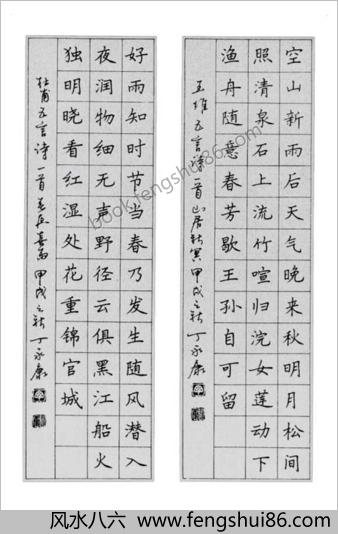 空山新雨后天气晚来秋明月松间
照清泉石上流竹喧归浣女莲动下
渔舟随意春芳歇王孙自可留
王维五言诗一首山居秋冥甲戌之秋丁永康
好雨知时节当春乃发生随风潜入
夜润物细无声野径云俱黑江船火
独明晓看红湿处花重锦官城
杜甫五言诗一首春夜喜雨甲戌之秋丁永康
book.fengshui86.com
风水八六 www.fengshui86.com